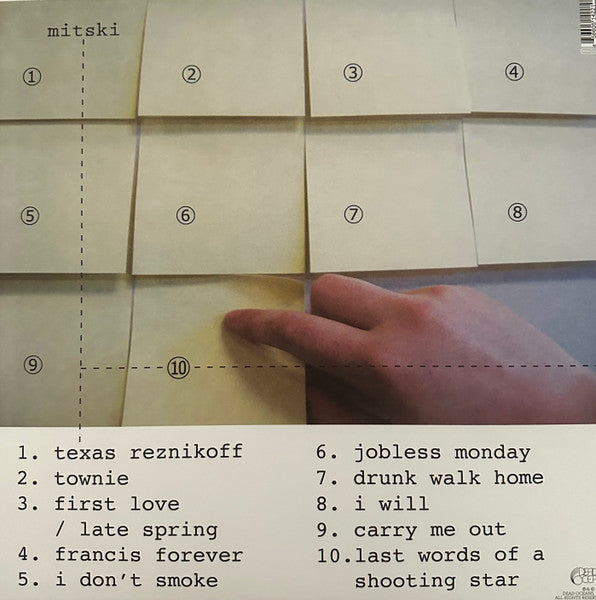 mitski
① ② ③ ④
⑤ ⑥ ⑦ ⑧
⑨ ⑩
1. texas reznikoff
2. townie
3. first love
/ late spring
4. francis forever
5. i don't smoke
6. jobless monday
7. drunk walk home
8. i will
9. carry me out
10.last words of a
shooting star
DEAD OCEANS